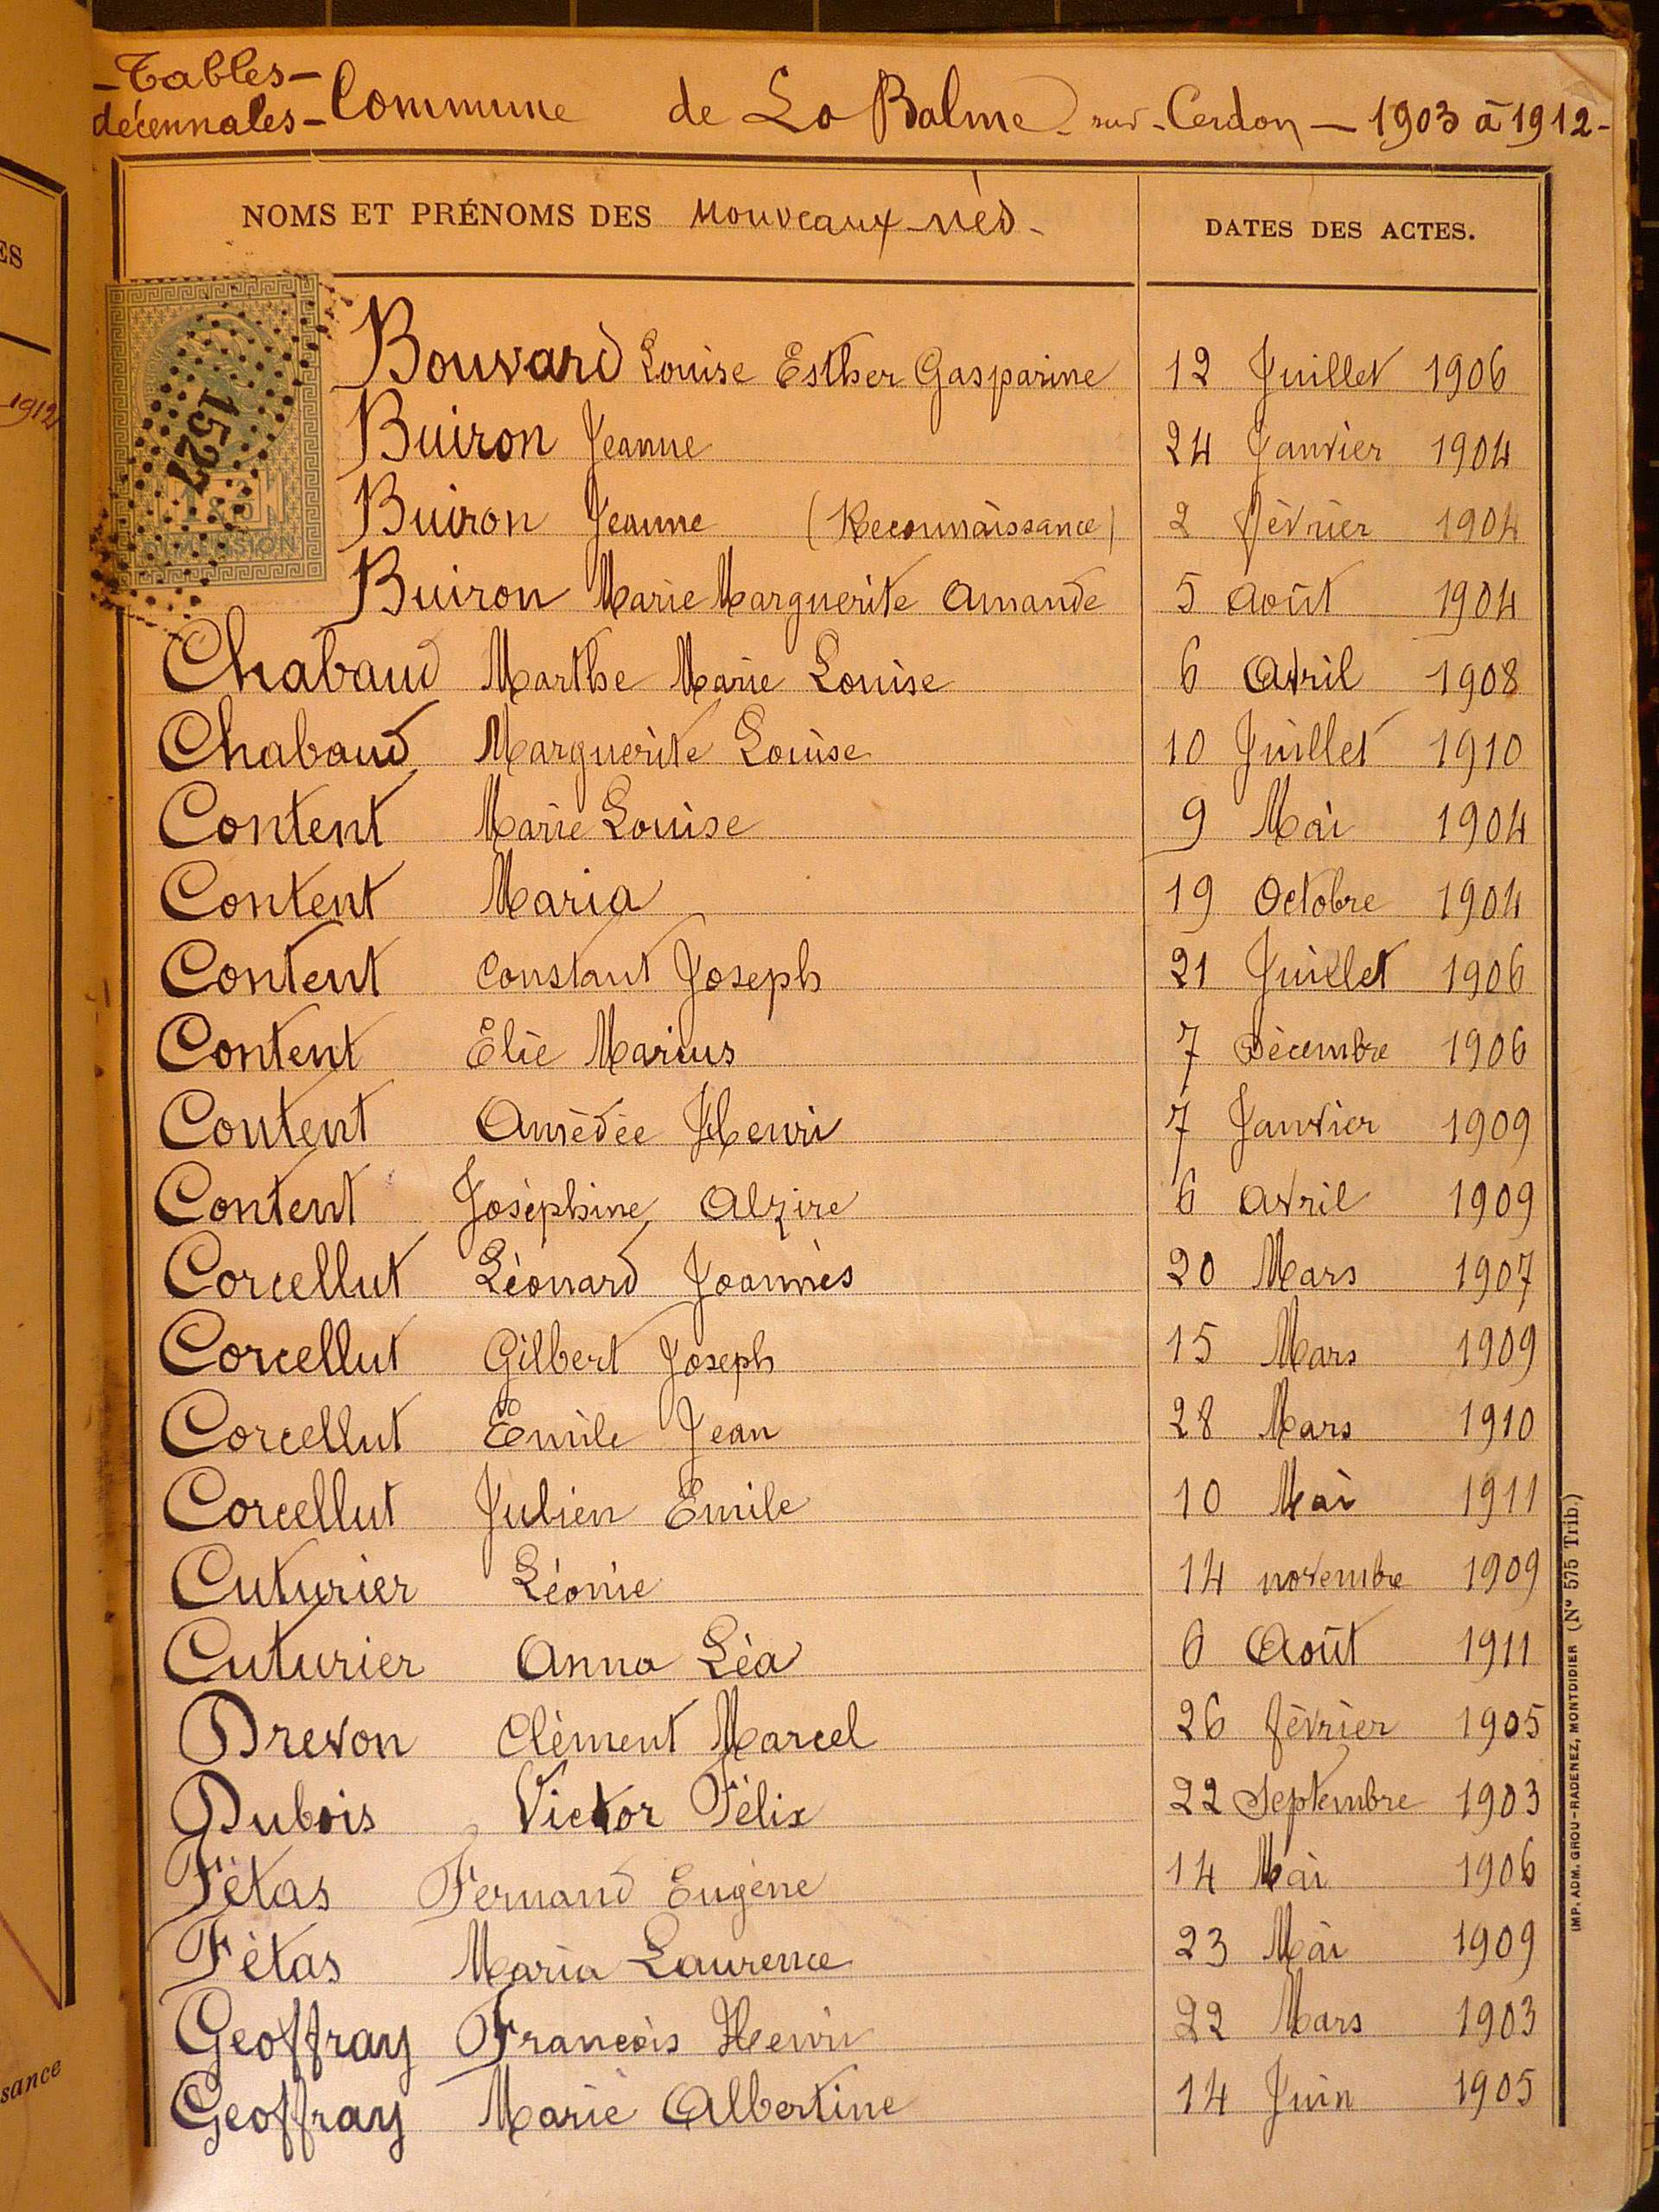 -Tables-
décennales- Commune de La Balme-sur-Cerdon - 1903 à 1912-
NOMS ET PRÉNOMS DES Nouveaux-nés-
DATES DES ACTES.
Bouvard Louise Esther Gasparine 12 Juillet 1906
Buiron Jeanne 24 Janvier 1904
Buiron Jeanne (Reconnaissance) 2 février 1904
Buiron Marie Marguerite Amande 5 Août 1904
Chabaud Marthe Marie Louise 6 Avril 1908
Chabaud Marguerite Louise 10 Juillet 1910
Content Marie Louise 9 Mai 1904
Content Maria 19 Octobre 1904
Content Constant Joseph 21 Juillet 1906
Content Elie Marius 7 Décembre 1906
Content Amédée Henri 7 Janvier 1909
Content Joséphine Alzire 6 Avril 1909
Corcellut Léonard Joannès 20 Mars 1907
Corcellut Gilbert Joseph 15 Mars 1909
Corcellut Emile Jean 28 Mars 1910
Corcellut Julien Emile 10 Mai 1911
Cuturier Léonie 14 novembre 1909
Cuturier Anna Léa 6 Août 1911
Drevon Clément Marcel 26 février 1905
Dubois Victor Félix 22 Septembre 1903
Fétas Fernand Eugène 14 Mai 1906
Fétas Maria Laurence 23 Mai 1909
Geoffray François Henri 22 Mars 1903
Geoffray Marie Albertine 14 Juin 1905
1527
IMP. ADM. GROU-RADENEZ, MONTDIDIER (N° 575 Trib.)
ES
1912
sance